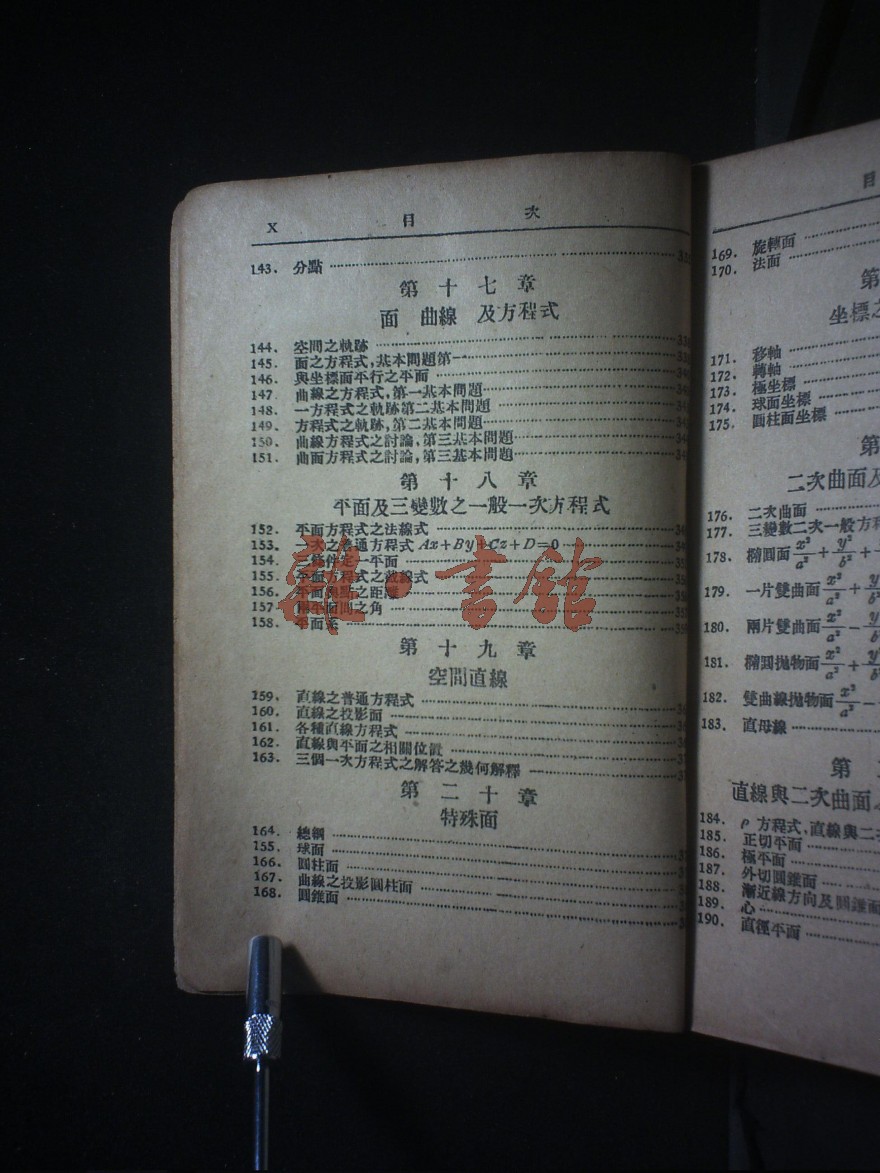 X 目 次
143. 分點
第十七章
面 曲線 及方程式
144. 空間之軌跡
145. 面之方程式,基本問題第一
146. 與坐標面平行之平面
147. 曲線之方程式,第一基本問題
148. 一方程式之軌跡第二基本問題
149. 方程式之軌跡,第二基本問題
150. 曲線方程式之討論,第三基本問題
151. 曲面方程式之討論,第三基本問題
第十八章
平面及三變數之一般一次方程式
152. 平面方程式之法線式
153. 一次之普通方程式 Ax+By+Cz+D=0
154. 三條件定一平面
155. 平面方程式之截線式
156. 平面與點之距離
157 兩平面間之角
158. 平面系
第十九章
空間直線
159. 直線之普通方程式
160. 直線之投影面
161. 各種直線方程式
162. 直線與平面之相關位置
163. 三個一次方程式之解答之幾何解釋
第二十章
特殊面
164. 總綱
155. 球面
166. 圓柱面
167. 曲線之投影圓柱面
168. 圓錐面
目
169. 旋轉面
170. 法面
第
坐標之
171. 移軸
172. 轉軸
173. 極坐標
174. 球面坐標
175. 圓柱面坐標
第
二次曲面及
176. 二次曲面
177. 三變數二次一般方程
178. 橢圓面 x²/a² + y²/b² +
179. 一片雙曲面 x²/a² + y²/b²
180. 兩片雙曲面 x²/a² − y/b
181. 橢圓拋物面 x²/a² + y²/b²
182. 雙曲線拋物面 x²/a² −
183. 直母線
第
直線與二次曲面
184. ρ 方程式,直線與二
185. 正切平面
186. 極平面
187. 外切圓錐面
188. 漸近線方向及圓錐面
189. 心
190. 直徑平面
雜·書館